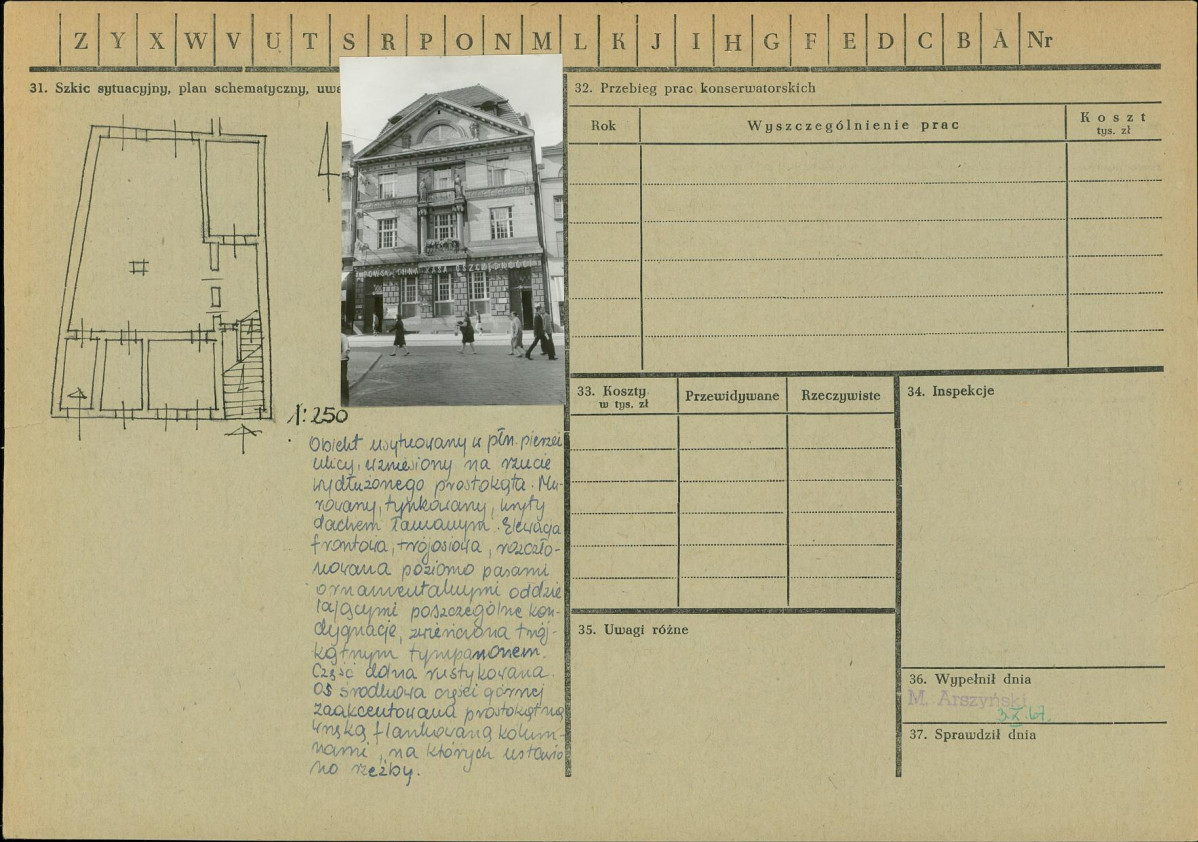 Z Y X W V U T S R P O N M L K J I H G F E D C B A Nr
31. Szkic sytuacyjny, plan schematyczny, uwa
1:250
Obiekt usytuowany w płn. pierzei
ulicy, wzniesiony na rzucie
wydłużonego prostokąta. Mu-
rowany, tynkowany, kryty
dachem łamanym. Elewacja
frontowa, trójosiowa, rozczło-
nowana poziomo pasami
ornamentalnymi oddzie
lającymi poszczególne kon-
dygnacje, zwieńczona trój-
kątnym tympanonem.
Część dolna rustykowana.
Oś środkowa części górnej
zaakcentowana prostokątną
wnęką flankowaną kolum-
nami, na których ustawio
no rzeźby.
POWSZECHNA KASA OSZCZĘDNOŚCI
32. Przebieg prac konserwatorskich
Rok Wyszczególnienie prac Koszt
tys. zł
33. Koszty Przewidywane Rzeczywiste
w tys. zł
34. Inspekcje
35. Uwagi różne
36. Wypełnił dnia
M. Arszyński
3.X.67.
37. Sprawdził dnia